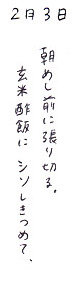 2月3日
朝めし前に張り切る。
玄米酢飯にシソしきつめて、